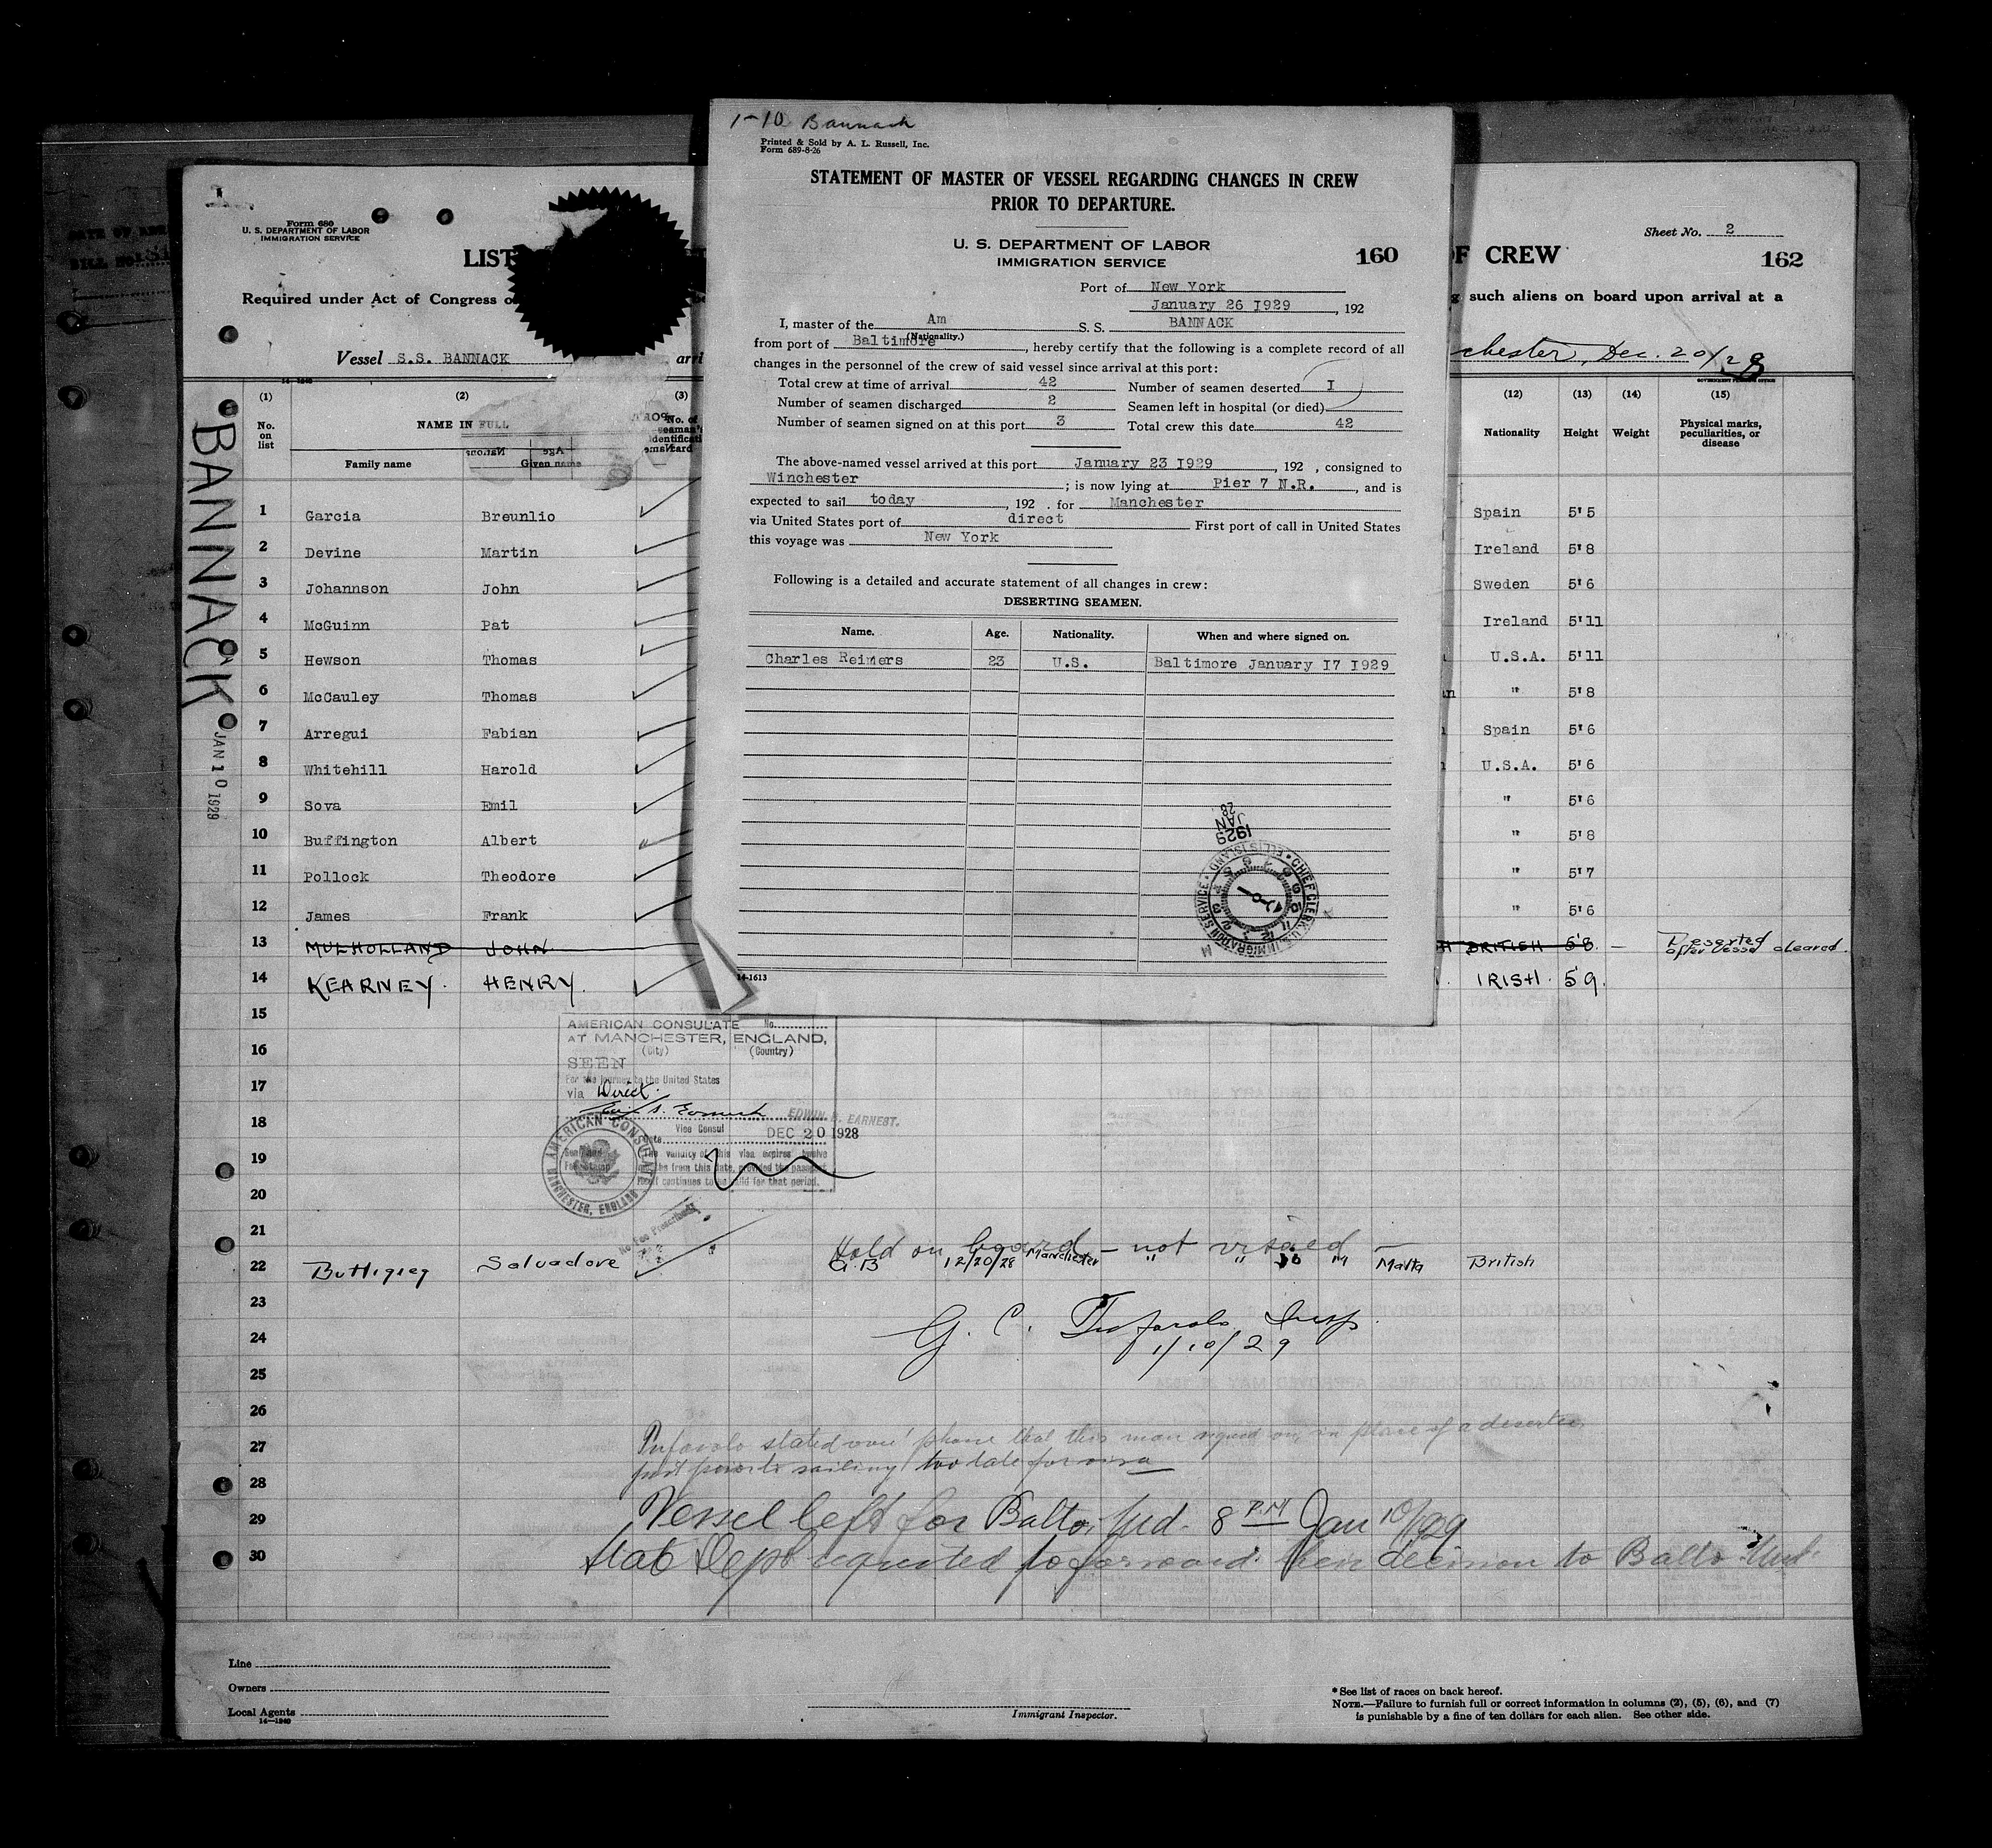 1-10 Bannack
Printed & Sold by A. L. Russell, Inc.
Form 689-8-26
STATEMENT OF MASTER OF VESSEL REGARDING CHANGES IN CREW
PRIOR TO DEPARTURE.
U. S. DEPARTMENT OF LABOR
IMMIGRATION SERVICE
160
Port of New York
January 26 I929, 192
I, master of the Am S. S. BANNACK
(Nationality.)
from port of Baltimore, hereby certify that the following is a complete record of all
changes in the personnel of the crew of said vessel since arrival at this port:
Total crew at time of arrival 42 Number of seamen deserted I
Number of seamen discharged 2 Seamen left in hospital (or died)
Number of seamen signed on at this port 3 Total crew this date 42
The above-named vessel arrived at this port January 23 I929, 192 , consigned to
Winchester; is now lying at Pier 7 N.R., and is
expected to sail today, 192 . for Manchester
via United States port of direct First port of call in United States
this voyage was New York
Following is a detailed and accurate statement of all changes in crew:
DESERTING SEAMEN.
Name. Age. Nationality. When and where signed on.
Charles Reimers 23 U.S. Baltimore January I7 I929
1929
JAN
28
CHIEF CLERK, U.S. IMMIGRATION SERVICE • ELLIS ISLAND •
14-1613
Form 680
U. S. DEPARTMENT OF LABOR
IMMIGRATION SERVICE
Sheet No. 2
LIST
OF CREW
162
Required under Act of Congress
such aliens on board upon arrival at a
Vessel S.S. BANNACK
chester, Dec. 20/28
BANNACK
JAN 10 1929
GOVERNMENT PRINTING OFFICE
(1) (2) (3) (12) (13) (14) (15)
No. on list NAME IN FULL No. of seaman's identification card Nationality Height Weight Physical marks, peculiarities, or disease
Family name Given name
1 Garcia Breunlio Spain 5'5
2 Devine Martin Ireland 5'8
3 Johannson John Sweden 5'6
4 McGuinn Pat Ireland 5'11
5 Hewson Thomas U.S.A. 5'11
6 McCauley Thomas " 5'8
7 Arregui Fabian Spain 5'6
8 Whitehill Harold U.S.A. 5'6
9 Sova Emil " 5'6
10 Buffington Albert " 5'8
11 Pollock Theodore " 5'7
12 James Frank " 5'6
13 MULHOLLAND JOHN BRITISH 5'8. — Deserted after vessel cleared.
14 KEARNEY. HENRY. IRISH. 5'9.
15
16
17
18
19
20
21
AMERICAN CONSULATE No.
AT MANCHESTER, ENGLAND,
(City) (Country)
SEEN
For the journey to the United States
via Direct.
EDWIN B. EARNEST.
Vice Consul
Date DEC 20 1928
The validity of this visa expires twelve
months from this date, provided the passport
continues to be valid for that period.
AMERICAN CONSULATE
MANCHESTER, ENGLAND
No Fee Prescribed
Hold on board — not visaed —
22 Buttigieg Salvadore G.B 12/20/28 Manchester " " " Malta British
23
24
G. C. Tufarolo Insp.
1/10/29
25
26
27
28
29
30
Tufarolo stated over phone that this man signed on in place of a deserter
just prior to sailing too late for visa
Vessel left for Balto, Md. 8 PM Jan 10/1929
State Dept requested to forward their decision to Balto. Md.
Line
Owners
Local Agents
14—1240
Immigrant Inspector.
* See list of races on back hereof.
NOTE.—Failure to furnish full or correct information in columns (2), (5), (6), and (7)
is punishable by a fine of ten dollars for each alien. See other side.